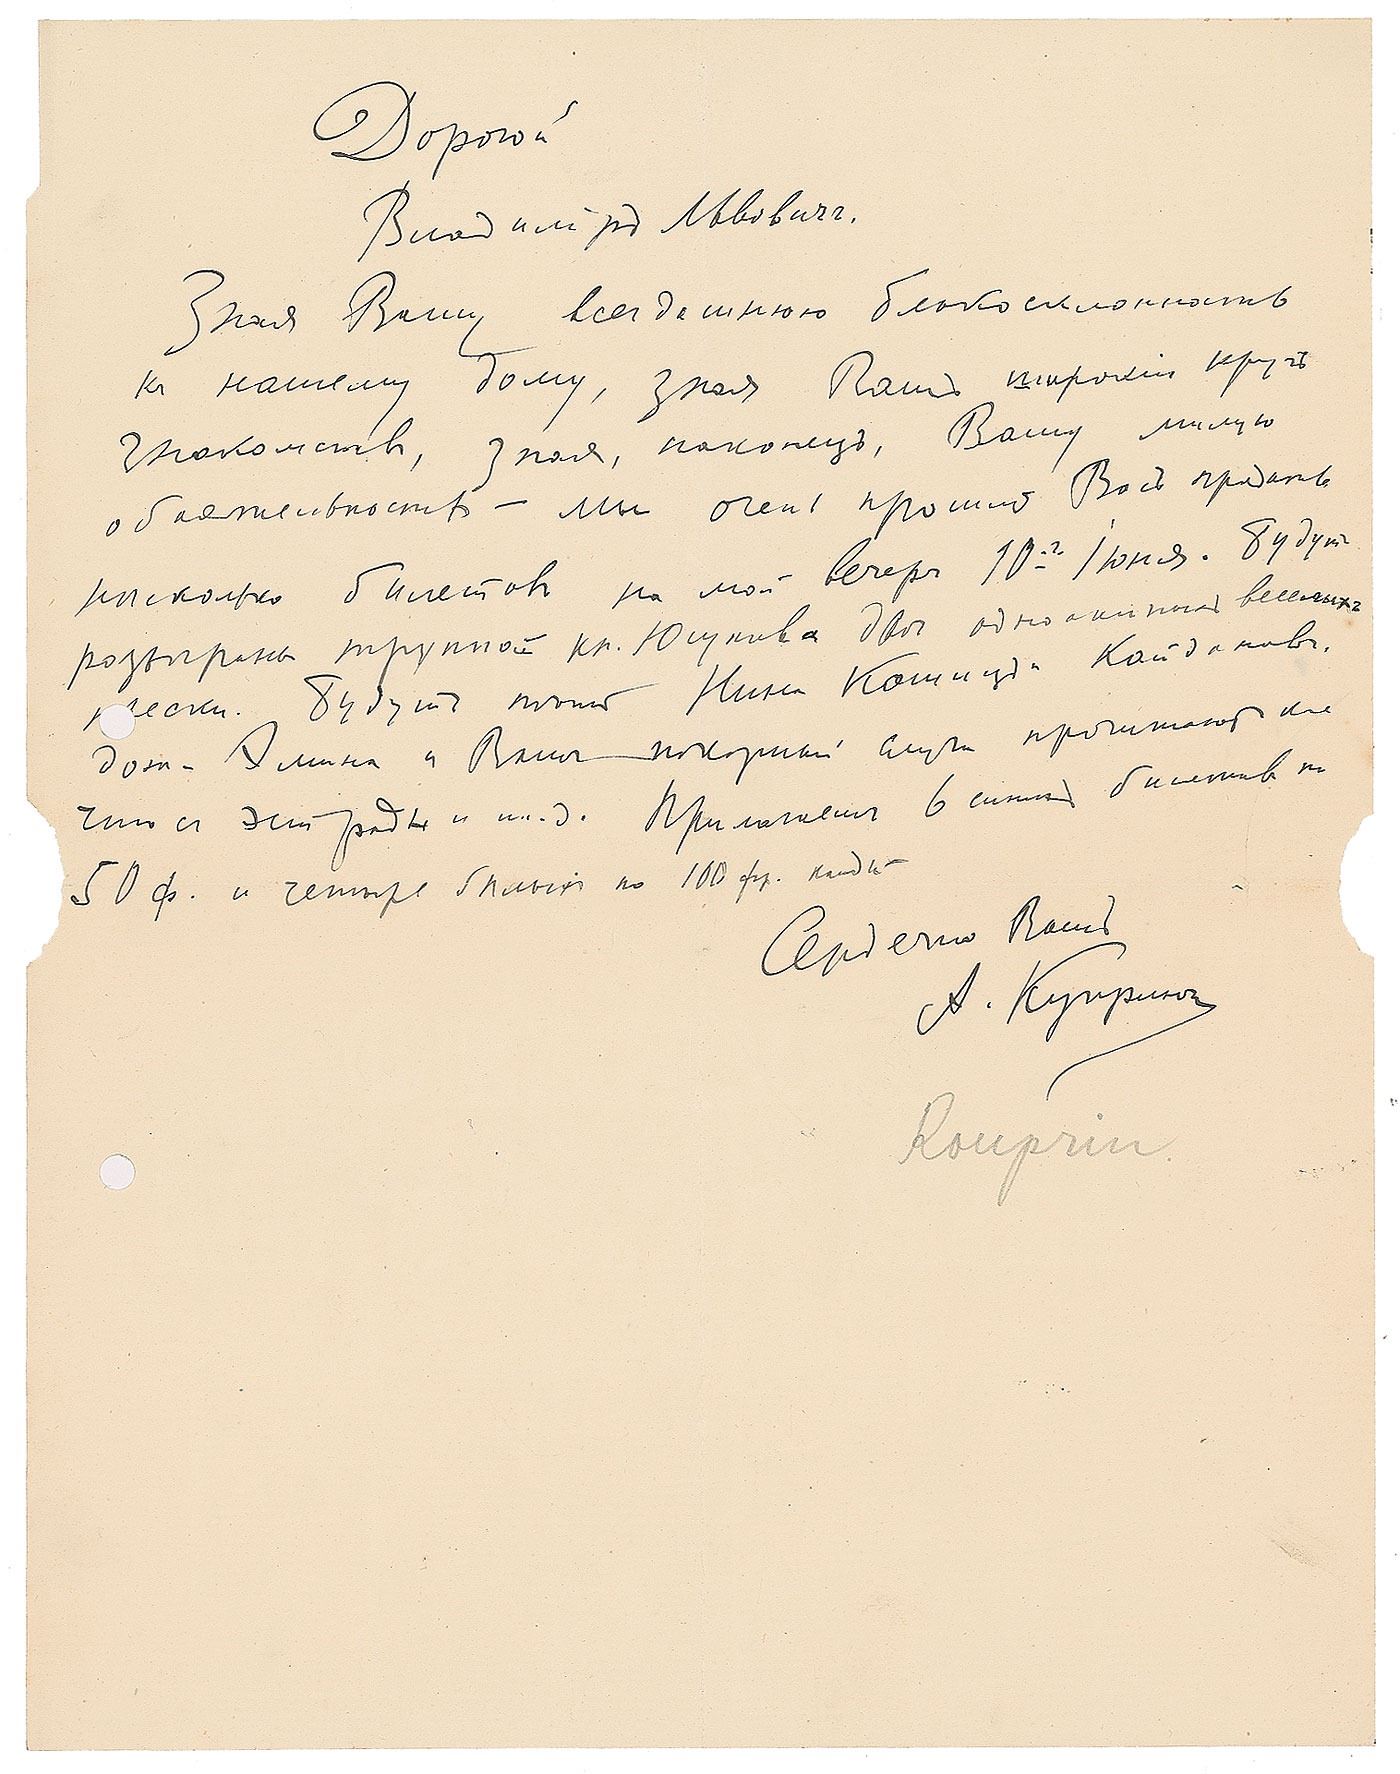 Дорогой
Владимiръ Львовичъ.
Зная Вашу всегдашнюю благосклонность
къ нашему дому, зная Вашъ широкiй кругъ
знакомствъ, зная, наконецъ, Вашу милую
обязательность — мы очень просимъ Васъ продать
нѣсколько билетовъ на мой вечеръ 10-г. Iюня. Будутъ
розыграны труппой кн. Юсупова двѣ одноактныхъ веселыхъ
пьески. Будутъ Нина Кошицъ и Кайдановъ.
Дона-Амина и Вашъ покорный слуга прочитаютъ кое
что съ эстрады и т.д. Прилагаемъ 6 синихъ билетовъ по
50 ф. и четыре бѣлыхъ по 100 фр.
Сердечно Вашъ
А. Купринъ
Kouprin.